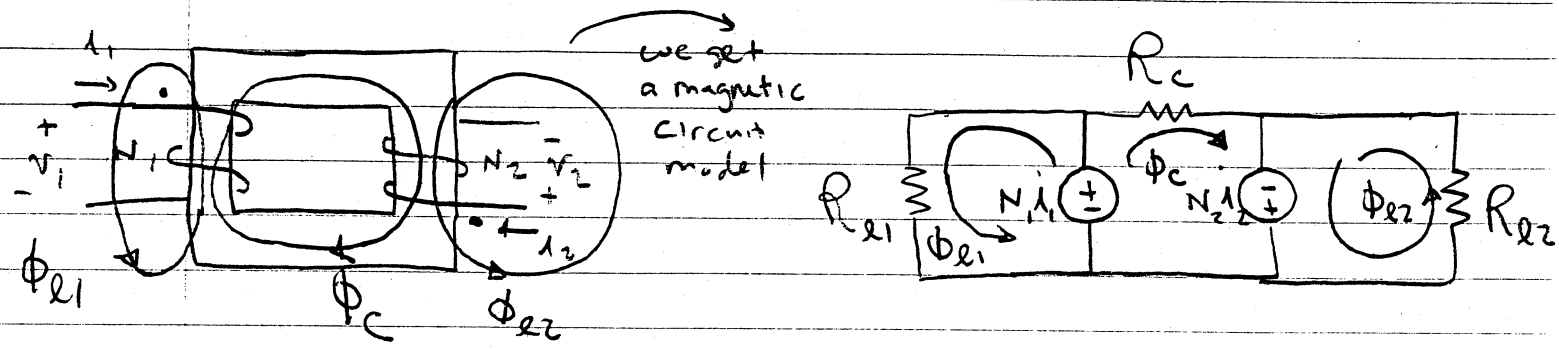 i₁
+
v₁
-
N₁
N₂
-
v₂
+
i₂
ϕℓ1
ϕc
ϕℓ2
we get
a magnetic
circuit
model
Rc
Rℓ1
ϕℓ1
N₁i₁
+
-
ϕc
N₂i₂
-
+
ϕℓ2
Rℓ2